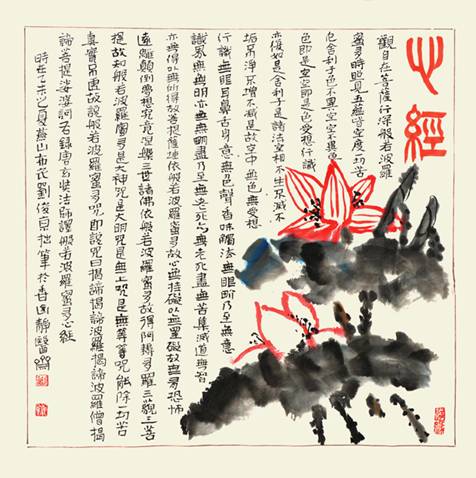 心經
觀自在菩薩行深般若波羅
蜜多時照見五蘊皆空度一切苦
厄舍利子色不異空空不異色
色即是空空即是色受想行識
亦復如是舍利子是諸法空相不生不滅不
垢不淨不增不減是故空中無色無受想
行識無眼耳鼻舌身意無色聲香味觸法無眼界乃至無意
識界無無明亦無無明盡乃至無老死亦無老死盡無苦集滅道無智
亦無得以無所得故菩提薩埵依般若波羅蜜多故心無挂礙以無罣礙故無有恐怖
遠離顛倒夢想究竟涅槃三世諸佛依般若波羅蜜多故得阿耨多羅三藐三菩
提故知般若波羅蜜多是大神咒是大明咒是無上咒是無等等咒能除一切苦
真實不虛故說般若波羅蜜多咒即說咒曰揭諦揭諦波羅揭諦波羅僧揭
諦菩提娑婆訶右錄唐玄奘法師譯般若波羅蜜多心經
時在乙未之夏燕山布衣劉俊京拙筆於香